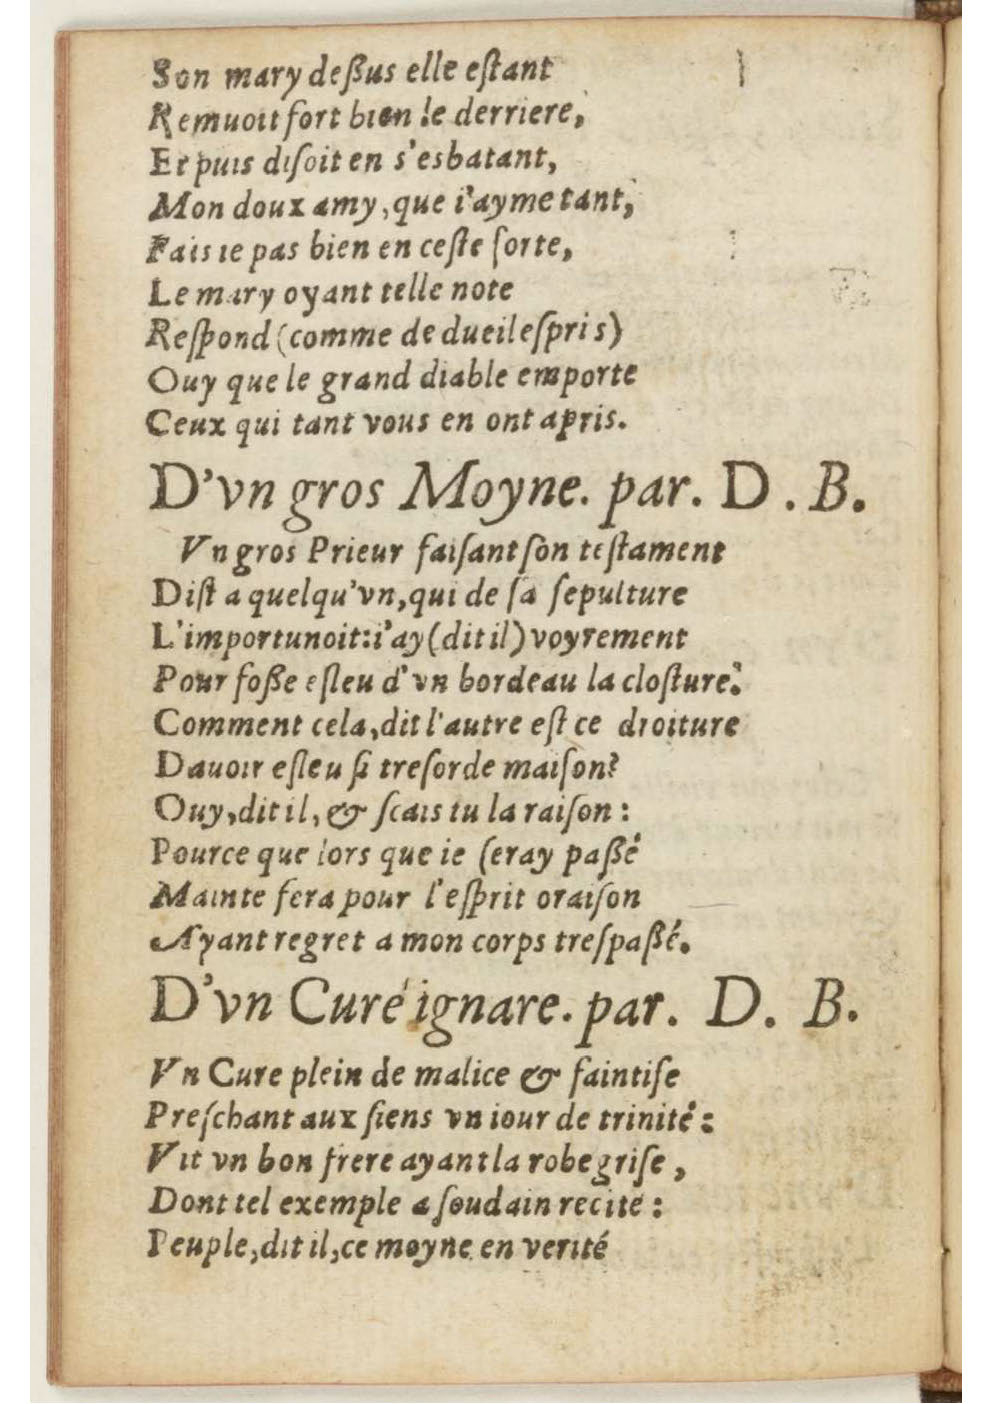 Son mary deßus elle eſtant
Remuoit fort bien le derriere,
Et puis diſoit en s'esbatant,
Mon doux amy, que i'ayme tant,
Fais ie pas bien en ceſte ſorte,
Le mary oyant telle note
Reſpond (comme de dueil eſpris)
Ouy que le grand diable emporte
Ceux qui tant vous en ont apris.
D'vn gros Moyne. par. D. B.
Vn gros Prieur faiſant ſon teſtament
Diſt a quelqu'vn, qui de ſa ſepulture
L'importunoit: i'ay (dit il) voyrement
Pour foße eſleu d'vn bordeau la cloſture:
Comment cela, dit l'autre eſt ce droiture
Dauoir eſleu ſi tresorde maiſon?
Ouy, dit il, & ſcais tu la raiſon:
Pource que lors que ie ſeray paßé
Mainte fera pour l'eſprit oraiſon
Ayant regret a mon corps treſpaßé.
D'vn Curé ignare. par. D. B.
Vn Cure plein de malice & faintiſe
Preſchant aux ſiens vn iour de trinité:
Vit vn bon frere ayant la robe griſe,
Dont tel exemple a ſoudain recité:
Peuple, dit il, ce moyne en verité